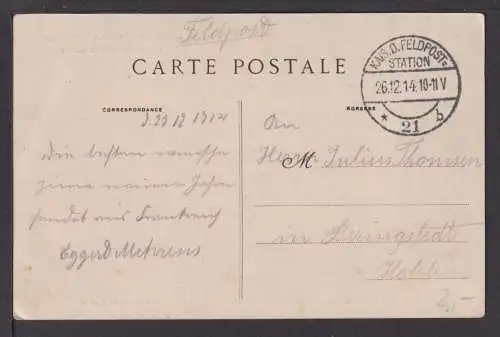 Feldpost
CARTE POSTALE
K.D. FELDPOST-
STATION
26.12.14. 10-11 V
* 21 b
CORRESPONDANCE
ADRESSE
d. 25 12 1914
Die besten wünsche
zum neuen Jahre
sendet aus Frankreich
Eggerd Mehrens
An
Herrn Julius Thomsen
M
in Beringstedt
Holst
2,-